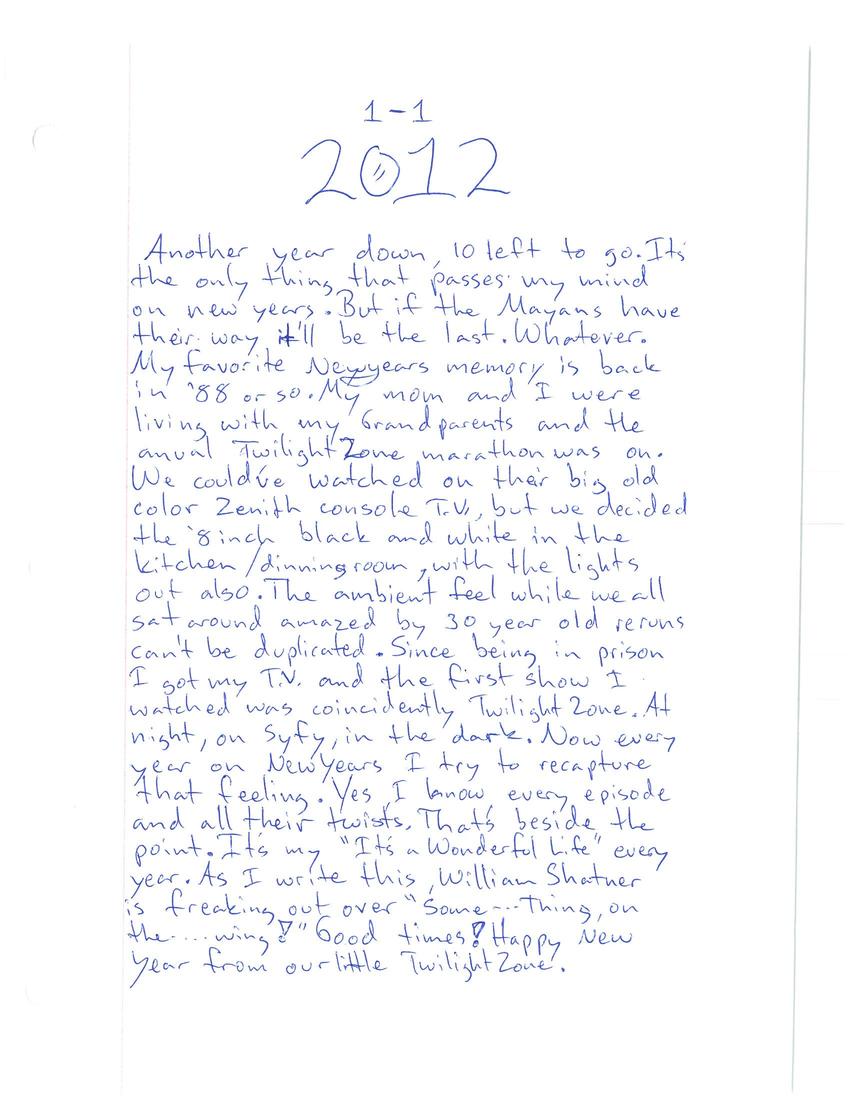 1-1
2012
Another year down, 10 left to go. It's
the only thing that passes my mind
on new years. But if the Mayans have
their way it'll be the last. Whatever.
My favorite Newyears memory is back
in '88 or so. My mom and I were
living with my Grandparents and the
anual Twilight Zone marathon was on.
We could've watched on their big old
color Zenith console T.V., but we decided
the '8 inch black and white in the
kitchen/dinning room, with the lights
out also. The ambient feel while we all
sat around amazed by 30 year old reruns
can't be duplicated. Since being in prison
I got my T.V. and the first show I
watched was coincidently Twilight Zone. At
night, on Syfy, in the dark. Now every
year on New Years I try to recapture
that feeling. Yes, I know every episode
and all their twists. That's beside the
point. It's my "It's a Wonderful Life" every
year. As I write this, William Shatner
is freaking out over "Some---Thing, on
the....wing!" Good times! Happy New
Year from our little Twilight Zone.